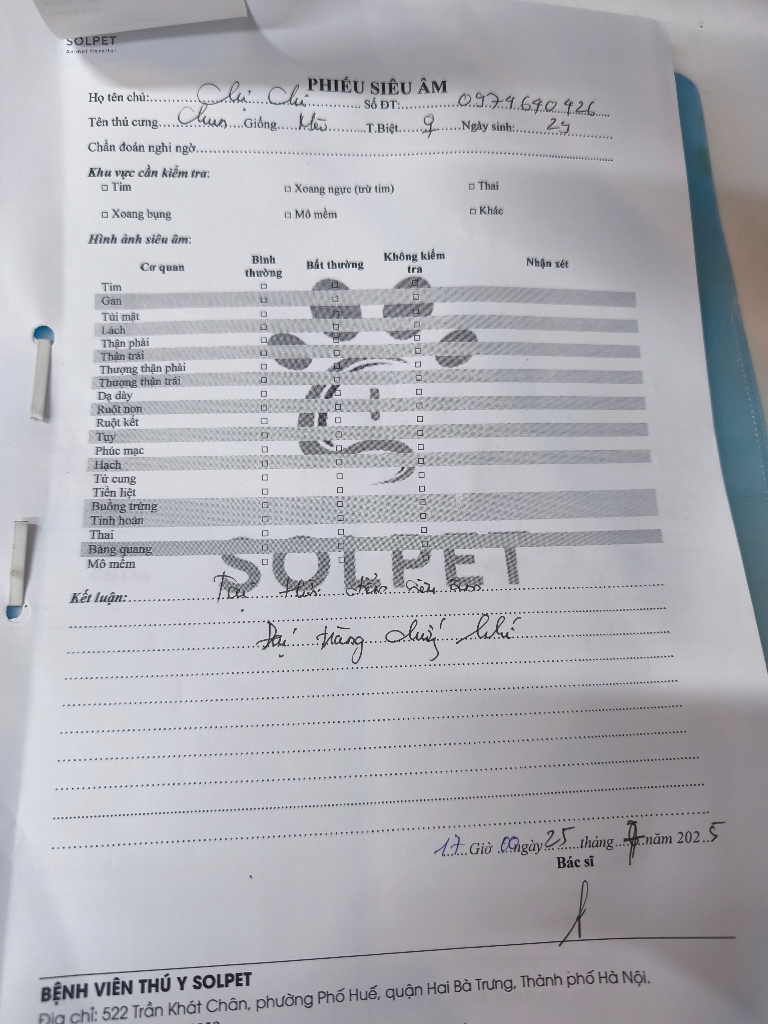 SOLPET
Animal Hospital
PHIẾU SIÊU ÂM
Họ tên chủ: Chị Chi Số ĐT: 0974.640.426
Tên thú cưng Giống Mèo T.Biệt ♀ Ngày sinh: 2y
Chẩn đoán nghi ngờ
Khu vực cần kiểm tra:
□ Tim □ Xoang ngực (trừ tim) □ Thai
□ Xoang bụng □ Mô mềm □ Khác
Hình ảnh siêu âm:
Cơ quan Bình thường Bất thường Không kiểm tra Nhận xét
Tim □ □ □
Gan □ □ □
Túi mật □ □ □
Lách □ □ □
Thận phải □ □ □
Thận trái □ □ □
Thượng thận phải □ □ □
Thượng thận trái □ □ □
Dạ dày □ □ □
Ruột non □ □ □
Ruột kết □ □ □
Tụy □ □ □
Phúc mạc □ □ □
Hạch □ □ □
Tử cung □ □ □
Tiền liệt □ □ □
Buồng trứng □ □ □
Tinh hoàn □ □ □
Thai □ □ □
Bàng quang □ □ □
Mô mềm □ □ □
SOLPET
Kết luận: Tại thời điểm siêu âm
Đại tràng chướng khí
17 Giờ 00 ngày 25 tháng 7 năm 2025
Bác sĩ
BỆNH VIỆN THÚ Y SOLPET
Địa chỉ: 522 Trần Khát Chân, phường Phố Huế, quận Hai Bà Trưng, Thành phố Hà Nội.